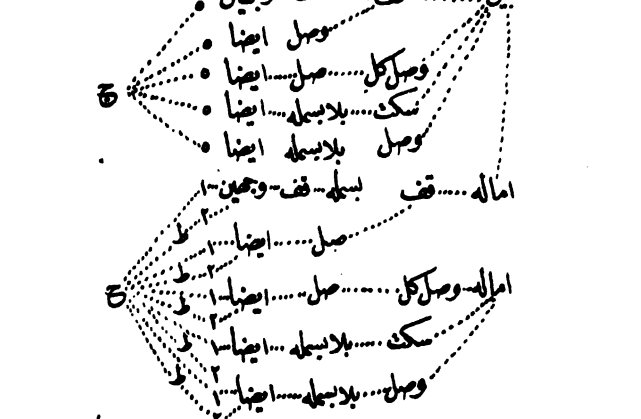 وصل ايضا
وصل كل صل ايضا
ج
سكت بلا بسمله ايضا
وصل بلا بسمله ايضا
اماله قف بسمله قف وجهين ١
٢
ط
صل ايضا ١
ط ٢
ج
اماله وصل كل صل ايضا ١
ط ٢
سكت بلا بسمله ايضا ١
ط ٢
وصل بلا بسمله ايضا ١
ط